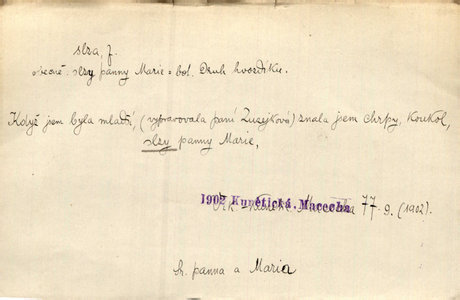 slza, f.
obecně. slzy panny Marie = bot. Druh hvozdíku.
Když jsem byla mladší, (vypravovala paní Zuzejková) znala jsem chrpy, koukol,
slzy panny Marie,
1902 Kunětická, Macecha 77. 9. (1902).
sr. panna a Maria